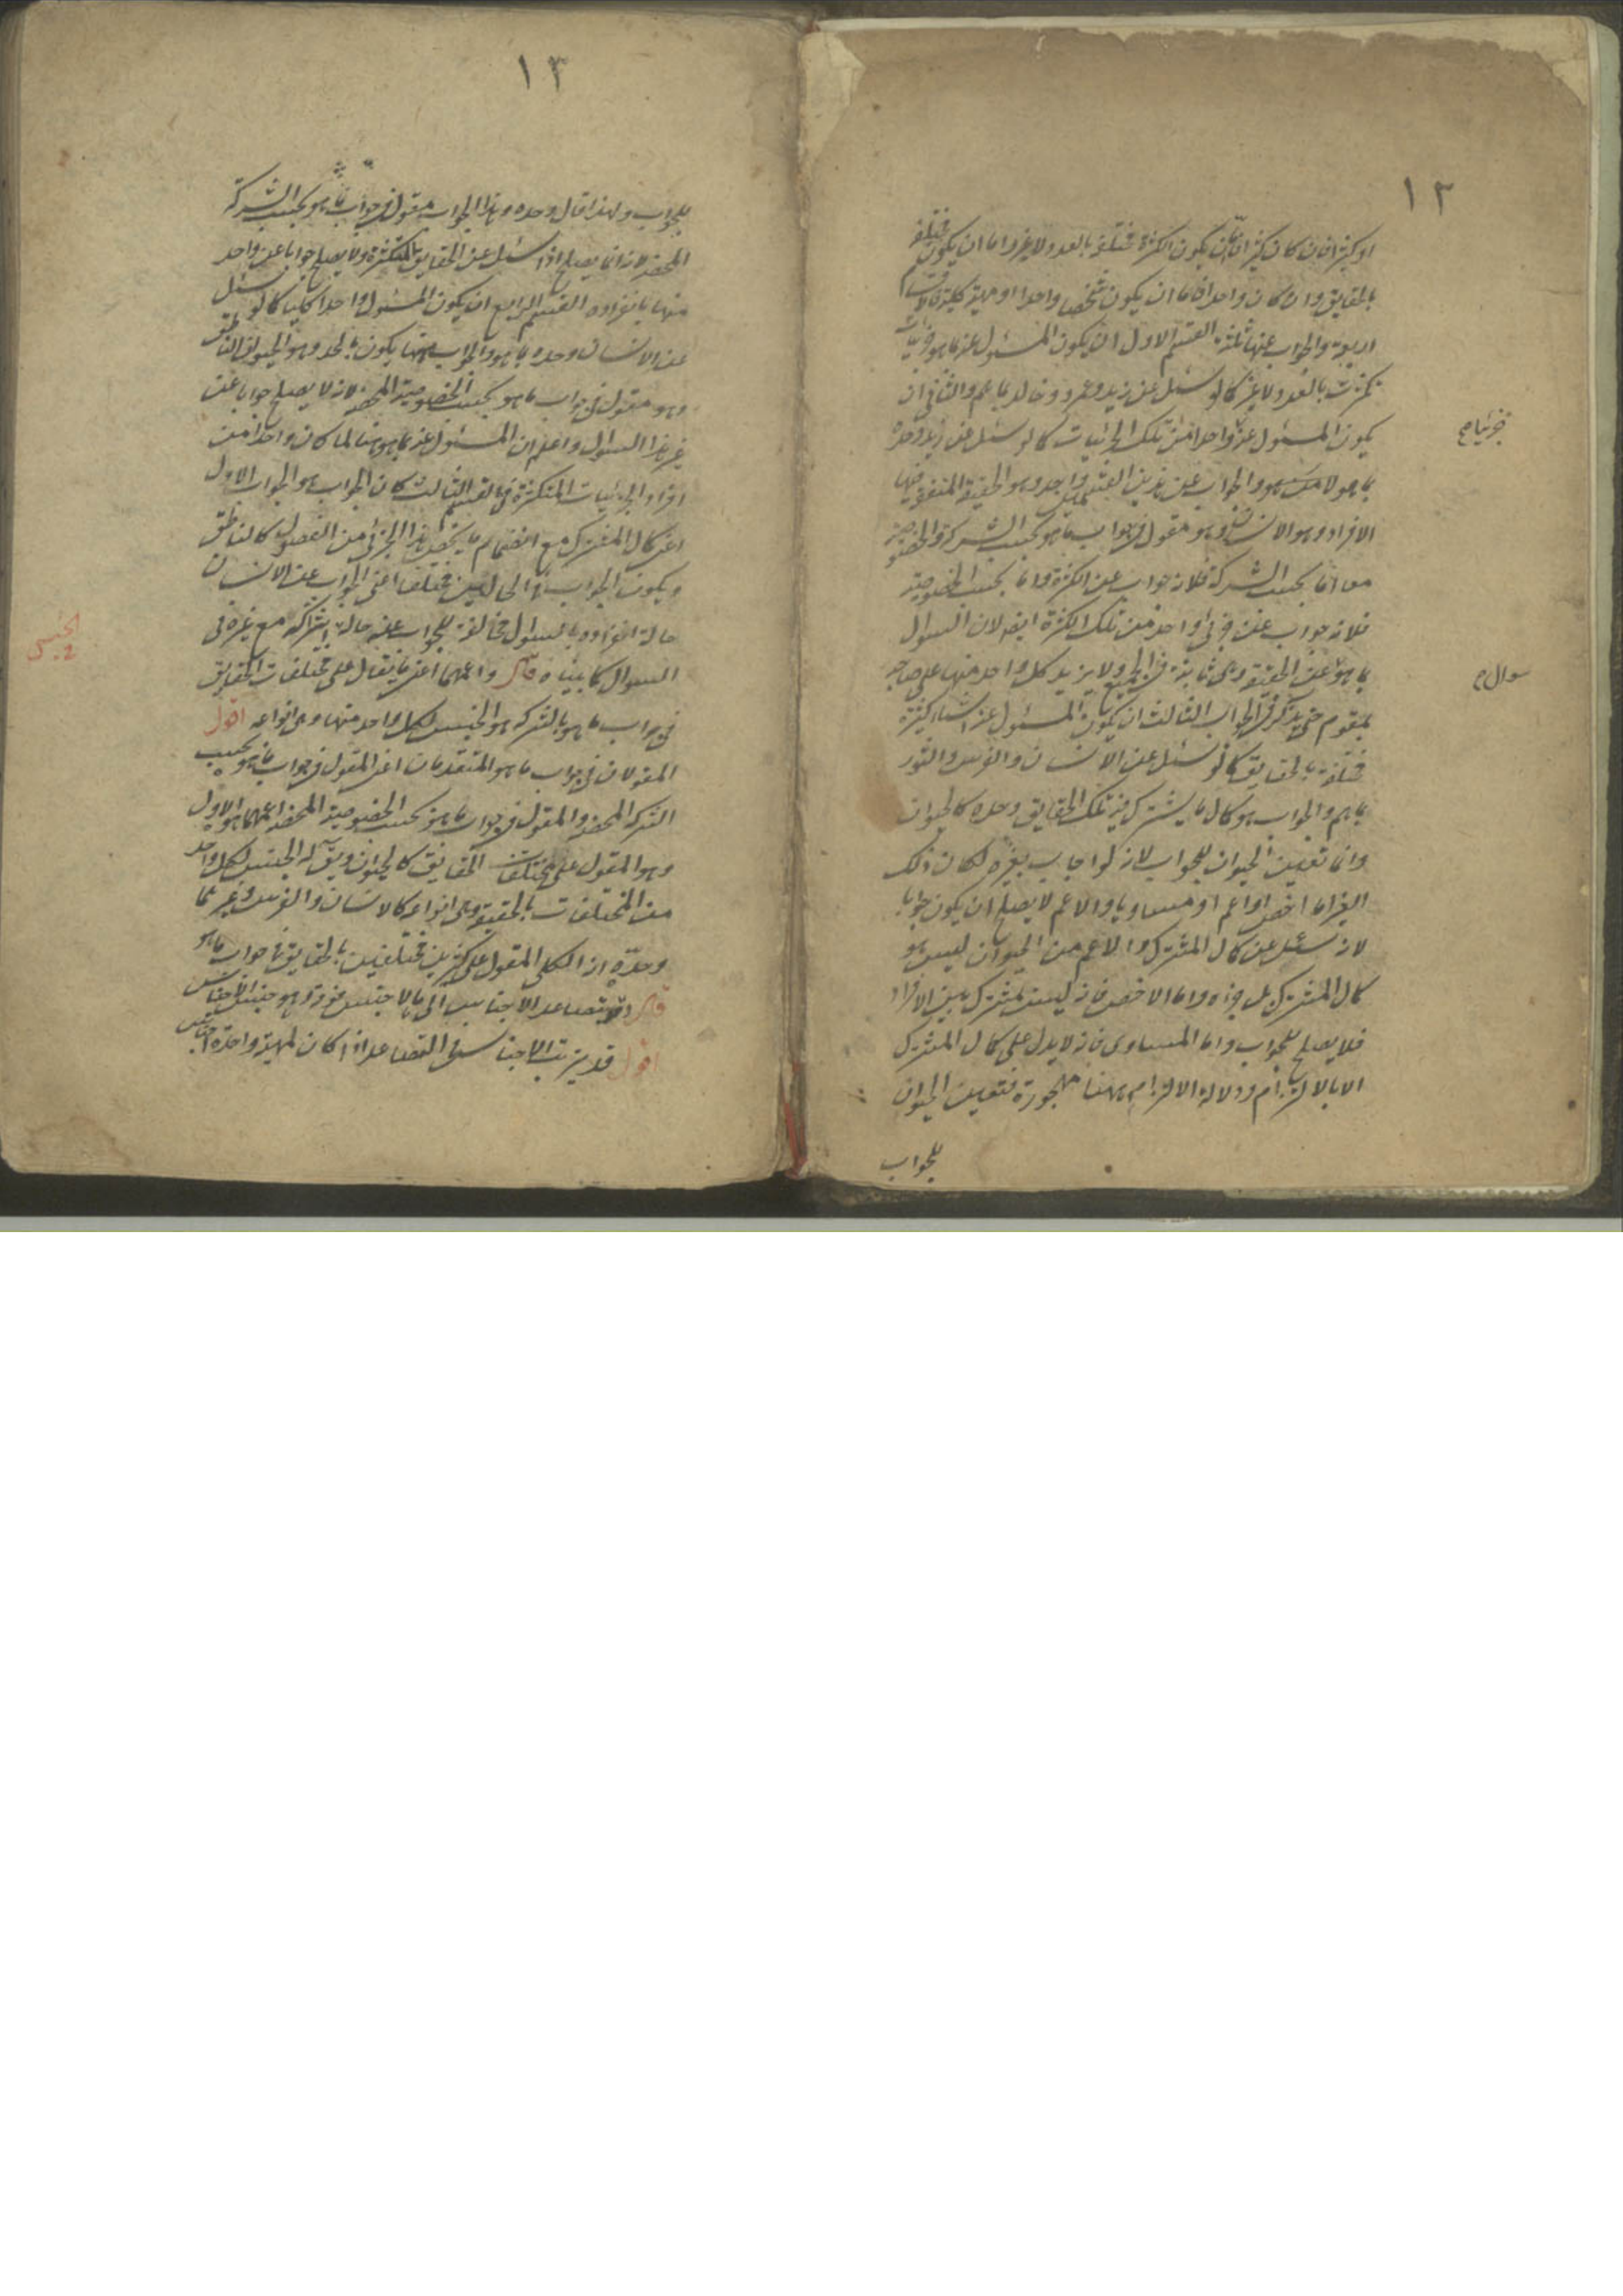 ١٢
او كثيرا فان كان كثيرا فاما ان يكون الكثرة مختلفة بالعدد ولا غير واما ان يكون مختلفة
بالحقايق وان كان واحدا فاما ان يكون شخصا واحدا او مهية كلية فالاقسام
اربعة والجواب عنها ثلثة القسم الاول ان يكون المسئول عنه بما هو جزئيات
تكثرت بالعدد ولا غير كما لو سئل عن زيد وعمرو وخالد بما هم والثانى ان
يكون المسئول عنه واحدا من تلك الجزئيات كما لو سئل عن زيد وحده
بما هو لا من هو والجواب عن هذين القسمين واحد وهو الحقيقة المتفقة فيها
الافراد وهو الانسان وهو مقول فى جواب ما هو بحسب الشركة والخصوصية
معا اما بحسب الشركة فلانه جواب عن الكثرة واما بحسب الخصوصية
فلانه جواب عن جزئى واحد من تلك الكثرة ايضا لان السوال
بما هو عن الحقيقة وهى ثابتة فى الجميع ولا يزيد كل واحد منها على صاحبه
بمقوم حتى يذكر فى الجواب الثالث ان يكون المسئول عنه اشياء كثيرة
مختلفة بالحقايق كما لو سئل عن الانسان والفرس والثور
بما هم والجواب هو كمال ما يشترك فيه تلك الحقايق وحده كالحيوان
وانما تعين الحيوان للجواب لانه لو اجاب بغيره لكان ذلك
الغير اما اخص او اعم او مساويا والاعم لا يصلح ان يكون جوابا
لانه سئل عن كمال المشترك والاعم من الحيوان ليس هو
كمال المشترك بل جزءه واما الاخص فانه ليس بمشترك بين الافراد
فلا يصلح للجواب واما المساوى فانه لا يدل على كمال المشترك
الا بالالتزام ودلالة الالتزام ههنا مهجورة فتعين الحيوان
للجواب
سوال
١٣
للجواب ولهذا قال وحده وهذا الجواب مقول فى جواب ما هو بحسب الشركة
المحضة لانه انما يصلح اذا سئل عن الحقايق المتكثرة ولا يصلح جوابا عن واحد
منها بانفراده القسم الرابع ان يكون المسئول واحدا كليا كما لو سئل
عن الانسان وحده بما هو والجواب عنها يكون بالحد وهو الحيوان الناطق
وهو مقول فى جواب ما هو بحسب الخصوصية المحضة لانه لا يصلح جوابا عن
غير هذا السوال واعلم ان المسئول عنه بما هو هنا لما كان واحدا من
افراد الجزئيات المتكثرة فى القسم الثالث كان الجواب هو الجواب الاول
اعنى كمال المشترك مع انضمام ما يختص بهذا الجزئى من الفصول كالناطق
ويكون الجواب فى الحالين مختلفا اعنى الجواب عن الانسان
حالة انفراده بالسوال مخالفة للجواب عنه حالة اشتراكه مع غيره فى
السوال كما بيناه قال واعمهما اعنى ما يقال على مختلفات الحقايق
فى جواب ما هو بالشركة هو الجنس لكل واحد منها وهى انواعه اقول
المقولان فى جواب ما هو المتقدمان اعنى المقول فى جواب ما هو بحسب
الشركة المحضة والمقول فى جواب ما هو بحسب الخصوصية المحضة اعمهما هو الاول
وهو المقول على مختلفات الحقايق كالحيوان ويق له الجنس لكل واحد
من المختلفات بالحقيقة وهى انواعه كالانسان والفرس وغيرهما
وحده انه الكلى المقول على كثيرين مختلفين بالحقايق فى جواب ما هو
قال وقد يتصاعد الاجناس الى ما لا جنس فوقه وهو جنس الاجناس
اقول قد يترتب الاجناس فى التصاعد اذا كان لمهية واحدة اجناس